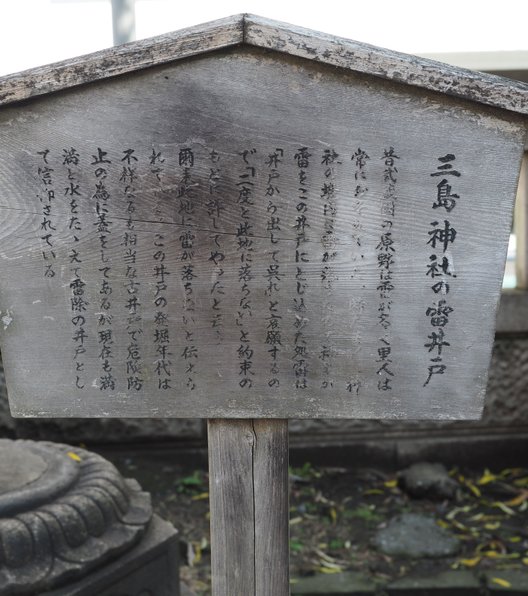 三島神社の雷井戸
昔武蔵国の原野は雷が多く里人は
常に 神
社 境内 雷が落 神
雷をこの井戸にとじ込めた処雷は
「井戸から出して呉れ」と哀願するの
で「二度と此地に落ちない」と約束の
もとに許してやったと云う
爾来此地に雷が落ちないと伝えら
れている この井戸の発掘年代は
不詳なるも相当な古井戸で危険防
止の為に蓋をしてあるが現在も満
満と水をたゝえて雷除の井戸とし
て信仰されている